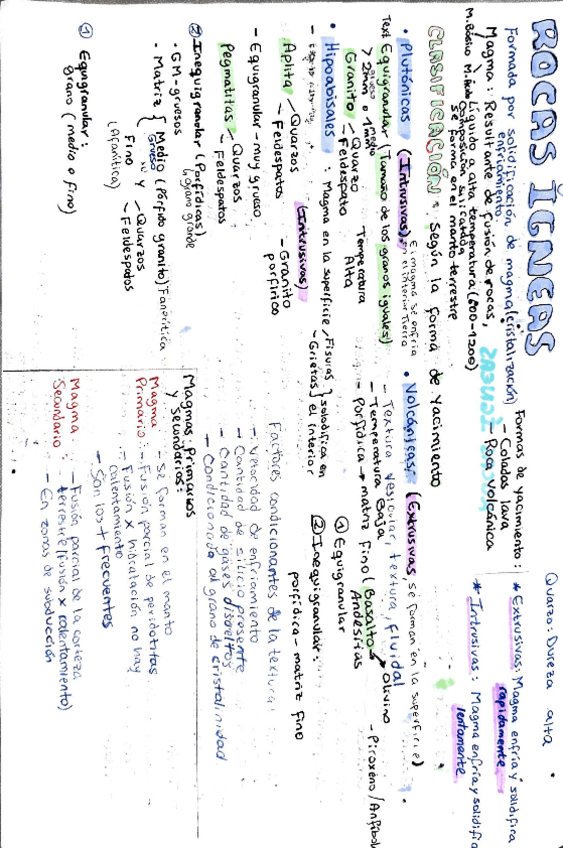 ROCAS ÍGNEAS
Formada por solidificación de magma (cristalización)
enfriamiento
Magma: Resultante de fusión de rocas,
M. Básico
Líquido a alta temperatura (600-1200)
Composición silicatada
se forma en el manto terrestre
Formas de yacimiento:
- Coladas lava
- Roca volcánica
Quarzo: Dureza alta
* Extrusivas: Magma enfría y solidifica
rapidamente
* Intrusivas: Magma enfría y solidifica
lentamente
CLASIFICACIÓN: según la forma de yacimiento
• Plutónicas (Intrusivas)
El magma se enfría
en el interior Tierra
Text Equigranular (Tamaño de los granos iguales)
> 2mm o 1 medio
grueso
Granito - Quarzo
- Feldespato
Temperatura
Alta
• Hipoabisales: Magma en la superficie
- Fisuras
- Grietas
} solidifica en
el interior
(Intrusivas)
Aplita - Quarzos
- Feldespatos
- Granito
porfírico
- Equigranular - muy grueso
Pegmatitas - Quarzos
- Feldespatos
② Inequigranular (Porfídicas)
grano grande
• GM-gruesos
• Matriz { Medio (Pórfido granito) Faneritica
Grueso
Fino
(Afanítica)
- Quarzos
- Feldespatos
① Equigranular:
grano (medio o fino)
• Volcánicas: (Extrusivas, se forman en la superficie)
- Textura vesicular, textura fluidal
- Temperatura Baja
- Porfídica → matriz fino (Basalto → Olivino
Andesitas
- Piroxeno / Anfíbol
① Equigranular
② Inequigranular:
porfídica - matriz fino
Factores condicionantes de la textura:
- Velocidad de enfriamiento
- Cantidad de silicio presente
- Cantidad de gases disueltos
- Condicionado al grano de cristalinidad
Magmas: Primarios
y Secundarios:
Magma
Primario:
- Se forman en el manto
- Fusión parcial de peridotitas
- Fusión x hidratación no hay
calentamiento
- Son los + frecuentes
Magma
Secundario:
- Fusión parcial de la corteza
terrestre (fusión x calentamiento)
- En zonas de subducción